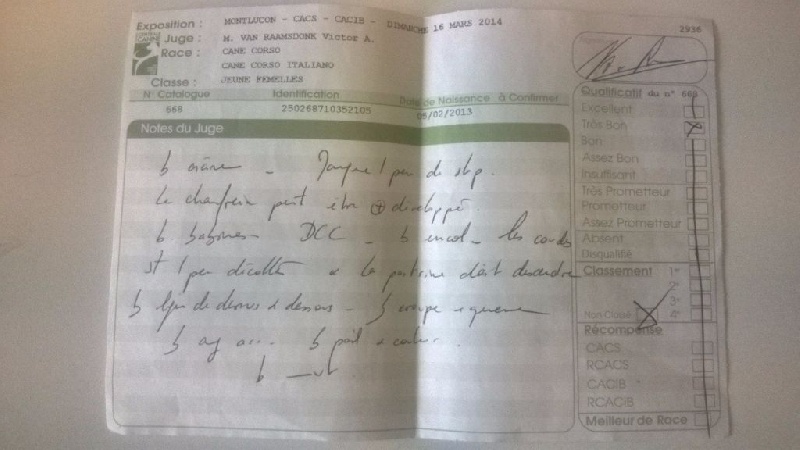 Exposition : MONTLUCON - CACS - CACIB - DIMANCHE 16 MARS 2014
Juge : M. VAN RAAMSDONK Victor A.
Race : CANE CORSO
CANE CORSO ITALIANO
Classe : JEUNE FEMELLES
2936
N° Catalogue Identification Date de Naissance à Confirmer
668 250268710352105 05/02/2013
Notes du Juge
b crâne - Manque 1 peu de stop.
Le chanfrein peut être + développé.
b. babines - DCC - b encol - les coudes
st 1 peu décollés & la poitrine doit descendre
b ligne de dessus & dessous - b croupe & queue
b ang b poil & couleur.
b mvt
Qualificatif du n° 668
Excellent
Très Bon
Bon
Assez Bon
Insuffisant
Très Prometteur
Prometteur
Assez Prometteur
Absent
Disqualifié
Classement 1°
2°
3°
Non Classé 4°
Récompense
CACS
RCACS
CACIB
RCACIB
Meilleur de Race